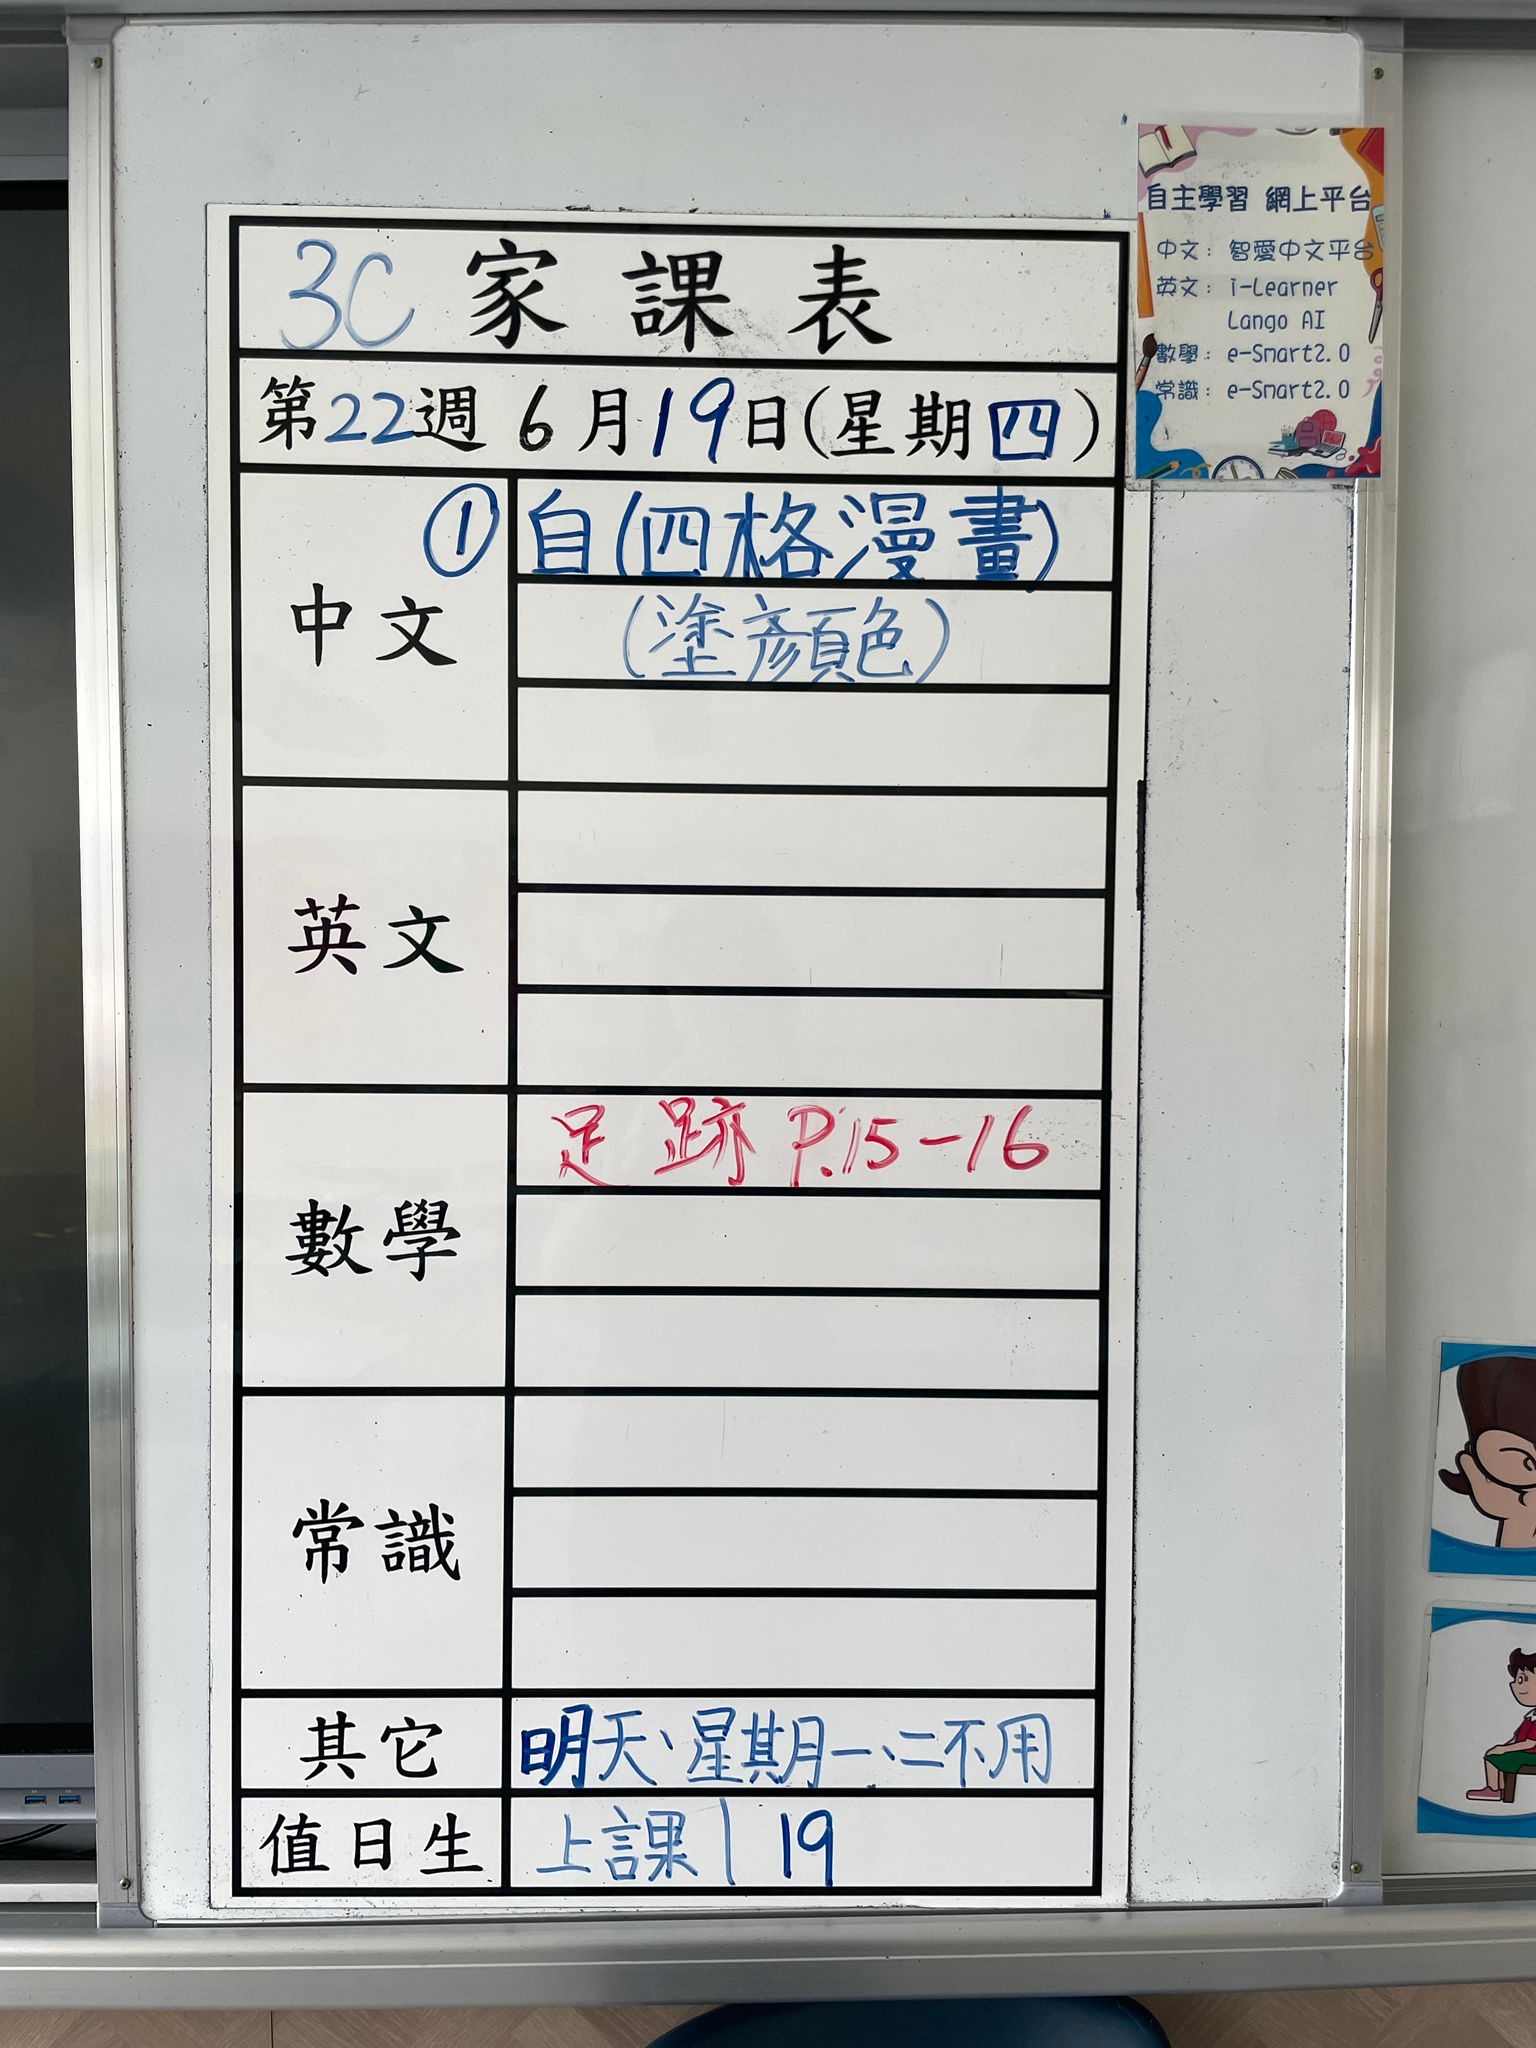 3C 家課表
第22週 6月19日(星期四)
中文
① 自(四格漫畫)
(塗顏色)
英文
數學
足跡 P.15-16
常識
其它
明天、星期一、二不用
值日生
上課 | 19
自主學習 網上平台
中文: 智愛中文平台
英文: i-Learner
Lango AI
數學: e-Smart2.0
常識: e-Smart2.0